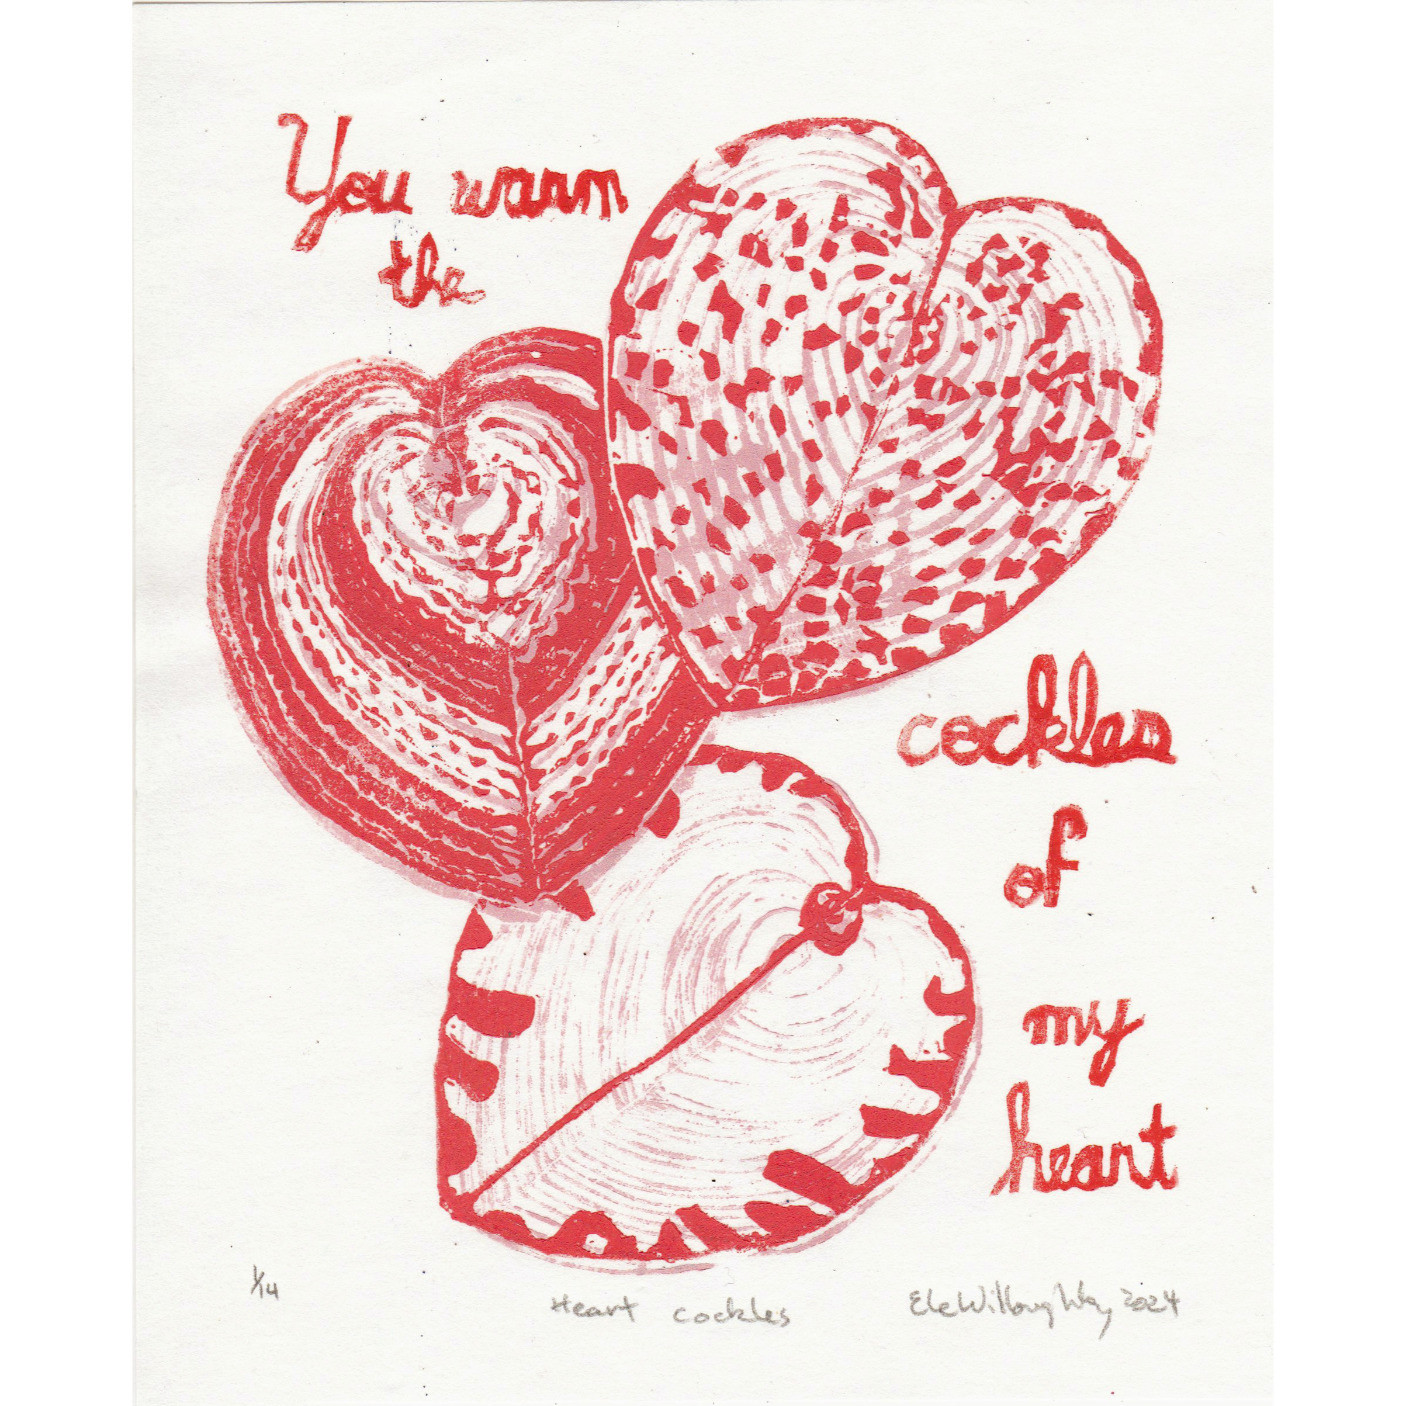 You warm
the
cockles
of
my
heart
1/14 Heart cockles Ele Willoughby, 2024